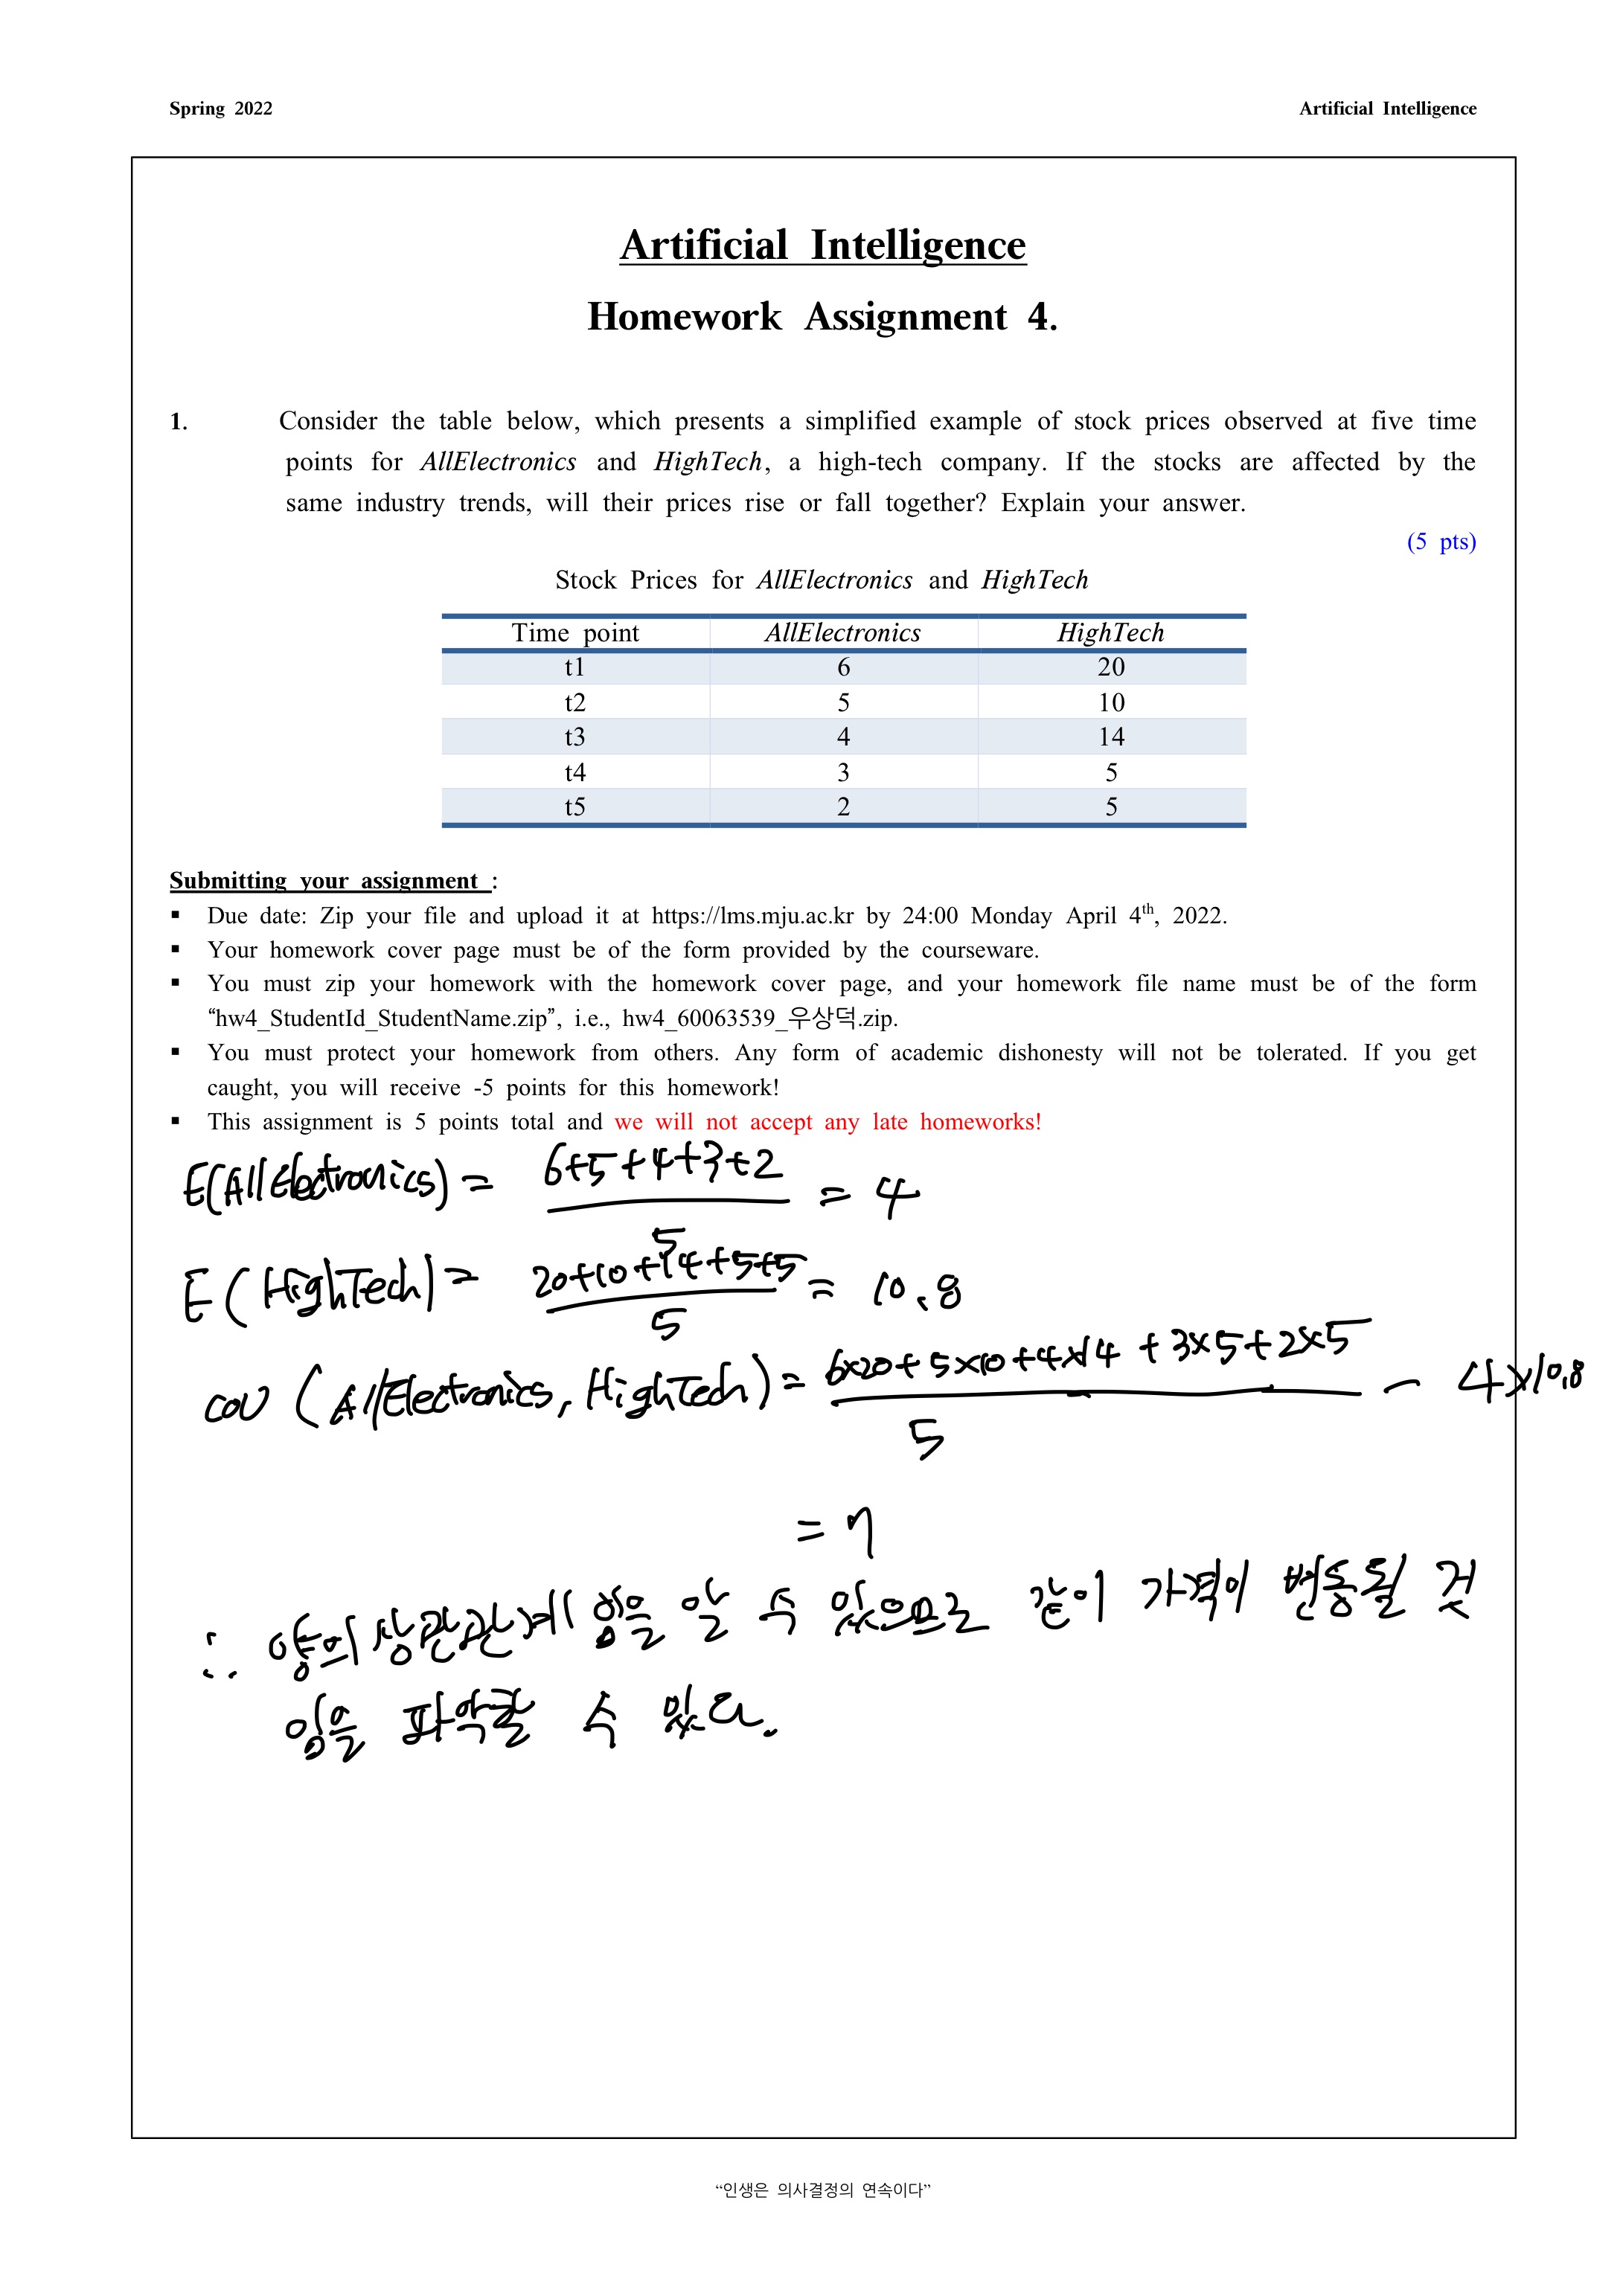 Spring 2022 Artificial Intelligence
Artificial Intelligence
Homework Assignment 4.
1. Consider the table below, which presents a simplified example of stock prices observed at five time
points for AllElectronics and HighTech, a high-tech company. If the stocks are affected by the
same industry trends, will their prices rise or fall together? Explain your answer.
(5 pts)
Stock Prices for AllElectronics and HighTech
Time point AllElectronics HighTech
t1 6 20
t2 5 10
t3 4 14
t4 3 5
t5 2 5
Submitting your assignment :
▪ Due date: Zip your file and upload it at https://lms.mju.ac.kr by 24:00 Monday April 4th, 2022.
▪ Your homework cover page must be of the form provided by the courseware.
▪ You must zip your homework with the homework cover page, and your homework file name must be of the form
“hw4_StudentId_StudentName.zip”, i.e., hw4_60063539_우상덕.zip.
▪ You must protect your homework from others. Any form of academic dishonesty will not be tolerated. If you get
caught, you will receive -5 points for this homework!
▪ This assignment is 5 points total and we will not accept any late homeworks!
E(AllElectronics) = (6+5+4+3+2)/5 = 4
E(HighTech) = (20+10+14+5+5)/5 = 10.8
cov (AllElectronics, HighTech) = (6×20+5×10+4×14+3×5+2×5)/5 - 4×10.8
= 7
∴ 양의 상관관계 임을 알 수 있으므로 같이 가격이 변동될 것
임을 파악할 수 있다.
“인생은 의사결정의 연속이다”